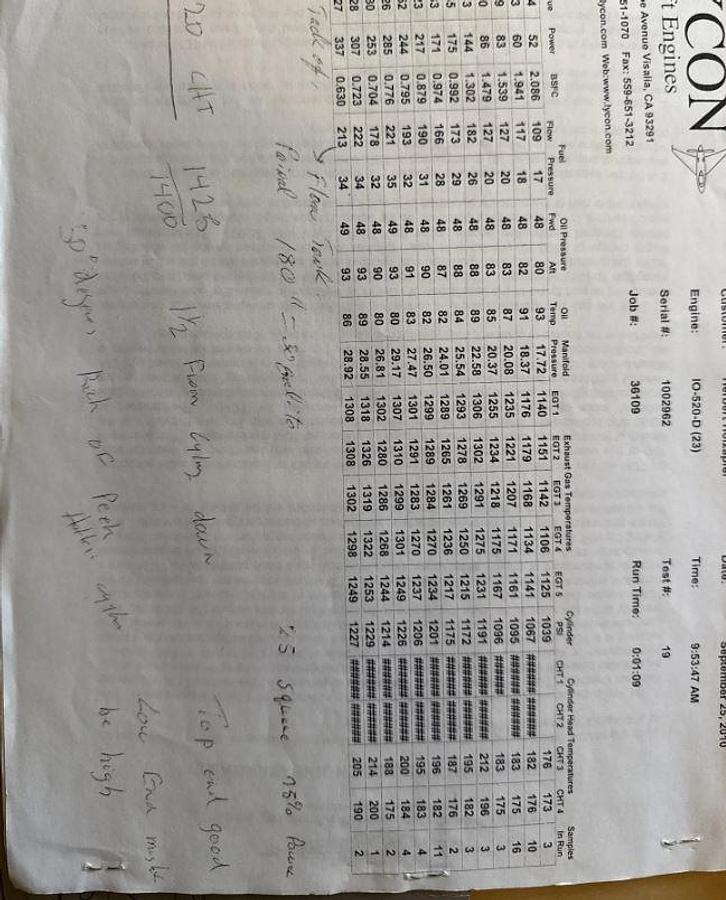 YCON
ft Engines
e Avenue Visalia, CA 93291
51-1070 Fax: 559-651-3212
lycon.com Web:www.lycon.com
September 25, 2010
Engine: IO-520-D (23) Time: 9:53:47 AM
Serial #: 1002962 Test #: 19
Job #: 36109 Run Time: 0:01:09
Fuel Oil Pressure Oil Manifold Exhaust Gas Temperatures Cylinder Cylinder Head Temperatures Samples
ue Power BSFC Flow Pressure Fwd Aft Temp Pressure EGT 1 EGT 2 EGT 3 EGT 4 EGT 5 PSI CHT 1 CHT 2 CHT 3 CHT 4 In Run
4 52 2.086 109 17 48 80 93 17.72 1140 1151 1142 1106 1125 1039 176 173 3
3 60 1.941 117 18 48 82 91 18.37 1176 1179 1168 1134 1141 1067 ####### ####### 182 176 10
9 83 1.539 127 20 48 83 87 20.08 1235 1221 1207 1171 1161 1095 ####### ####### 183 175 16
0 86 1.479 127 20 48 83 85 20.37 1255 1234 1218 1175 1167 1096 ####### 183 175 3
3 144 1.302 182 26 48 88 89 22.58 1306 1302 1291 1275 1231 1191 ####### ####### 212 196 3
5 175 0.992 173 29 48 88 84 25.54 1293 1278 1269 1250 1215 1172 ####### ####### 195 182 3
3 171 0.974 166 28 48 87 82 24.01 1289 1265 1261 1236 1217 1175 ####### ####### 187 176 2
3 217 0.879 190 31 48 90 82 26.50 1299 1289 1284 1270 1234 1201 ####### ####### 196 182 11
52 244 0.795 193 32 48 91 83 27.47 1301 1291 1283 1270 1237 1206 ####### ####### 195 183 4
26 285 0.776 221 35 49 93 80 29.17 1307 1310 1299 1301 1249 1226 ####### ####### 200 184 4
30 253 0.704 178 32 48 90 80 26.81 1302 1280 1286 1268 1244 1214 ####### ####### 188 175 2
28 307 0.723 222 34 48 93 89 28.55 1318 1326 1319 1322 1253 1229 ####### ####### 214 200 1
27 337 0.630 213 34 49 93 86 28.92 1308 1308 1302 1298 1249 1227 ####### ####### 205 190 2
Flow
180 25 Square 75% Power
20 CHT 1426 1 1/2 from down Top end good
1400 Low End might
degrees Rich of Peek be high